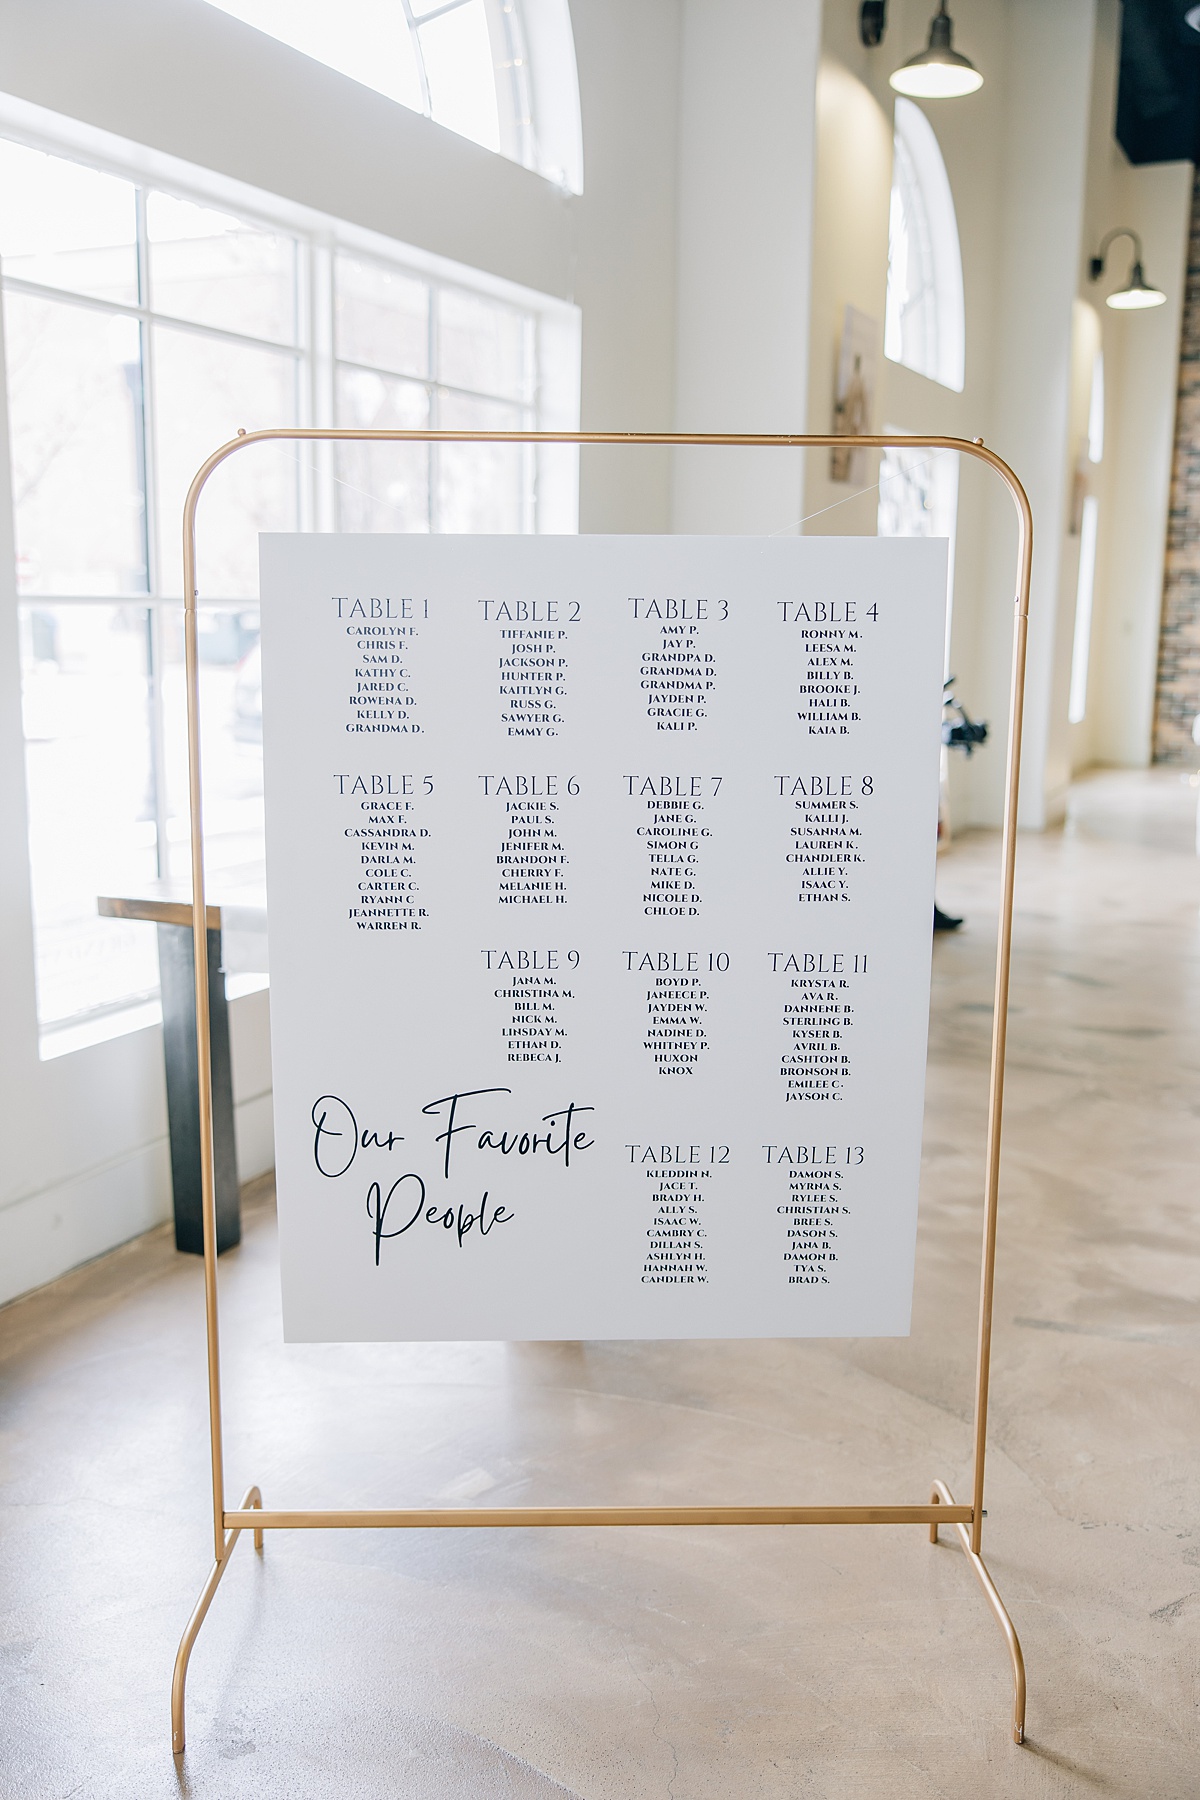 TABLE 1
CAROLYN F.
CHRIS F.
SAM D.
KATHY C.
JARED C.
ROWENA D.
KELLY D.
GRANDMA D.
TABLE 2
TIFFANIE P.
JOSH P.
JACKSON P.
HUNTER P.
KAITLYN G.
RUSS G.
SAWYER G.
EMMY G.
TABLE 3
AMY P.
JAY P.
GRANDPA D.
GRANDMA D.
GRANDMA P.
JAYDEN P.
GRACIE G.
KALI P.
TABLE 4
RONNY M.
LEESA M.
ALEX M.
BILLY B.
BROOKE J.
HALI B.
WILLIAM B.
KAIA B.
TABLE 5
GRACE F.
MAX F.
CASSANDRA D.
KEVIN M.
DARLA M.
COLE C.
CARTER C.
RYANN C
JEANNETTE R.
WARREN R.
TABLE 6
JACKIE S.
PAUL S.
JOHN M.
JENIFER M.
BRANDON F.
CHERRY F.
MELANIE H.
MICHAEL H.
TABLE 7
DEBBIE G.
JANE G.
CAROLINE G.
SIMON G
TELLA G.
NATE G.
MIKE D.
NICOLE D.
CHLOE D.
TABLE 8
SUMMER S.
KALLI J.
SUSANNA M.
LAUREN K.
CHANDLER K.
ALLIE Y.
ISAAC Y.
ETHAN S.
TABLE 9
JANA M.
CHRISTINA M.
BILL M.
NICK M.
LINSDAY M.
ETHAN D.
REBECA J.
TABLE 10
BOYD P.
JANEECE P.
JAYDEN W.
EMMA W.
NADINE D.
WHITNEY P.
HUXON
KNOX
TABLE 11
KRYSTA R.
AVA R.
DANNENE B.
STERLING B.
KYSER B.
AVRIL B.
CASHTON B.
BRONSON B.
EMILEE C.
JAYSON C.
Our Favorite
People
TABLE 12
KLEDDIN N.
JACE T.
BRADY H.
ALLY S.
ISAAC W.
CAMBRY C.
DILLAN S.
ASHLYN H.
HANNAH W.
CANDLER W.
TABLE 13
DAMON S.
MYRNA S.
RYLEE S.
CHRISTIAN S.
BREE S.
DASON S.
JANA B.
DAMON B.
TYA S.
BRAD S.